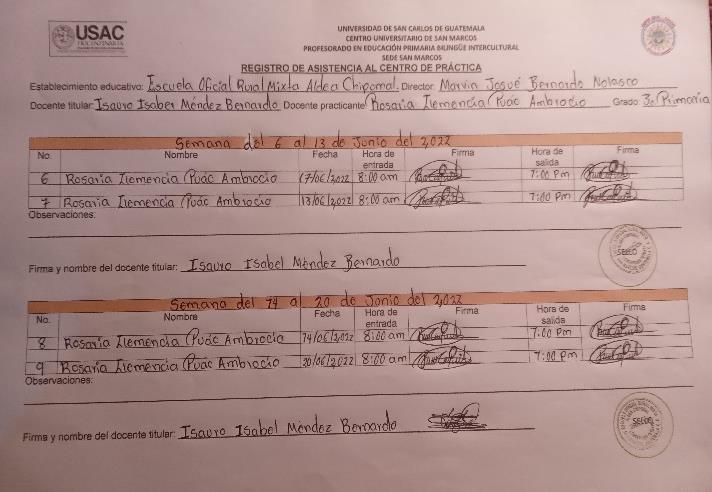 USAC
TRICENTENARIA
UNIVERSIDAD DE SAN CARLOS DE GUATEMALA
CENTRO UNIVERSITARIO DE SAN MARCOS
PROFESORADO EN EDUCACIÓN PRIMARIA BILINGÜE INTERCULTURAL
SEDE SAN MARCOS
REGISTRO DE ASISTENCIA AL CENTRO DE PRÁCTICA
Establecimiento educativo: Escuela Oficial Rural Mixta Aldea Chipomal. Director: Marvin Josué Bernardo Nolasco
Docente titular: Isauro Isabel Méndez Bernardo Docente practicante: Rosaria Clemencia Puác Ambrocio Grado: 3o Primaria
Semana del 6 al 13 de Junio del 2,022
No. Nombre Fecha Hora de entrada Firma Hora de salida Firma
6 Rosaria Clemencia Puác Ambrocio 8:00 am 7:00 Pm
7 Rosaria Clemencia Puác Ambrocio 13/06/2022 8:00 am 7:00 Pm
Observaciones:
Firma y nombre del docente titular: Isauro Isabel Méndez Bernardo
SELLO
Semana del 14 al 20 de Junio del 2,022
No. Nombre Fecha Hora de entrada Firma Hora de salida Firma
8 Rosaria Clemencia Puác Ambrocio 14/06/2022 8:00 am 7:00 Pm
9 Rosaria Clemencia Puác Ambrocio 20/06/2022 8:00 am 7:00 Pm
Observaciones:
Firma y nombre del docente titular: Isauro Isabel Méndez Bernardo
SELLO